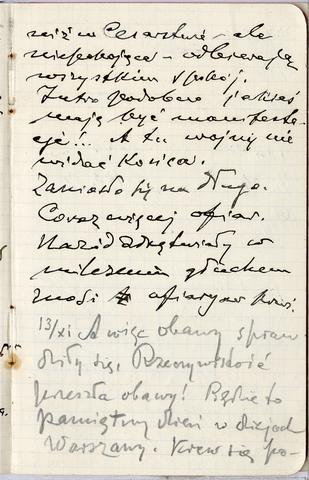 niż w Cesarstwie – ale
niepokojące – odbierają
wszystkim spokój.
Jutro podobno jakieś
mają być manifesta-
cje!.. A tu wojny nie
widać końca.
Zaniosło się na długo.
Coraz więcej ofiar.
Naród zdrętwiały w
milczeniu głuchem
ofiary krwi.
13/XI A więc obawy spraw-
dziły się. Rzeczywistość
przeszła obawy! Będzie to
pamiętny dzień w dziejach
Warszawy. Krew się po-